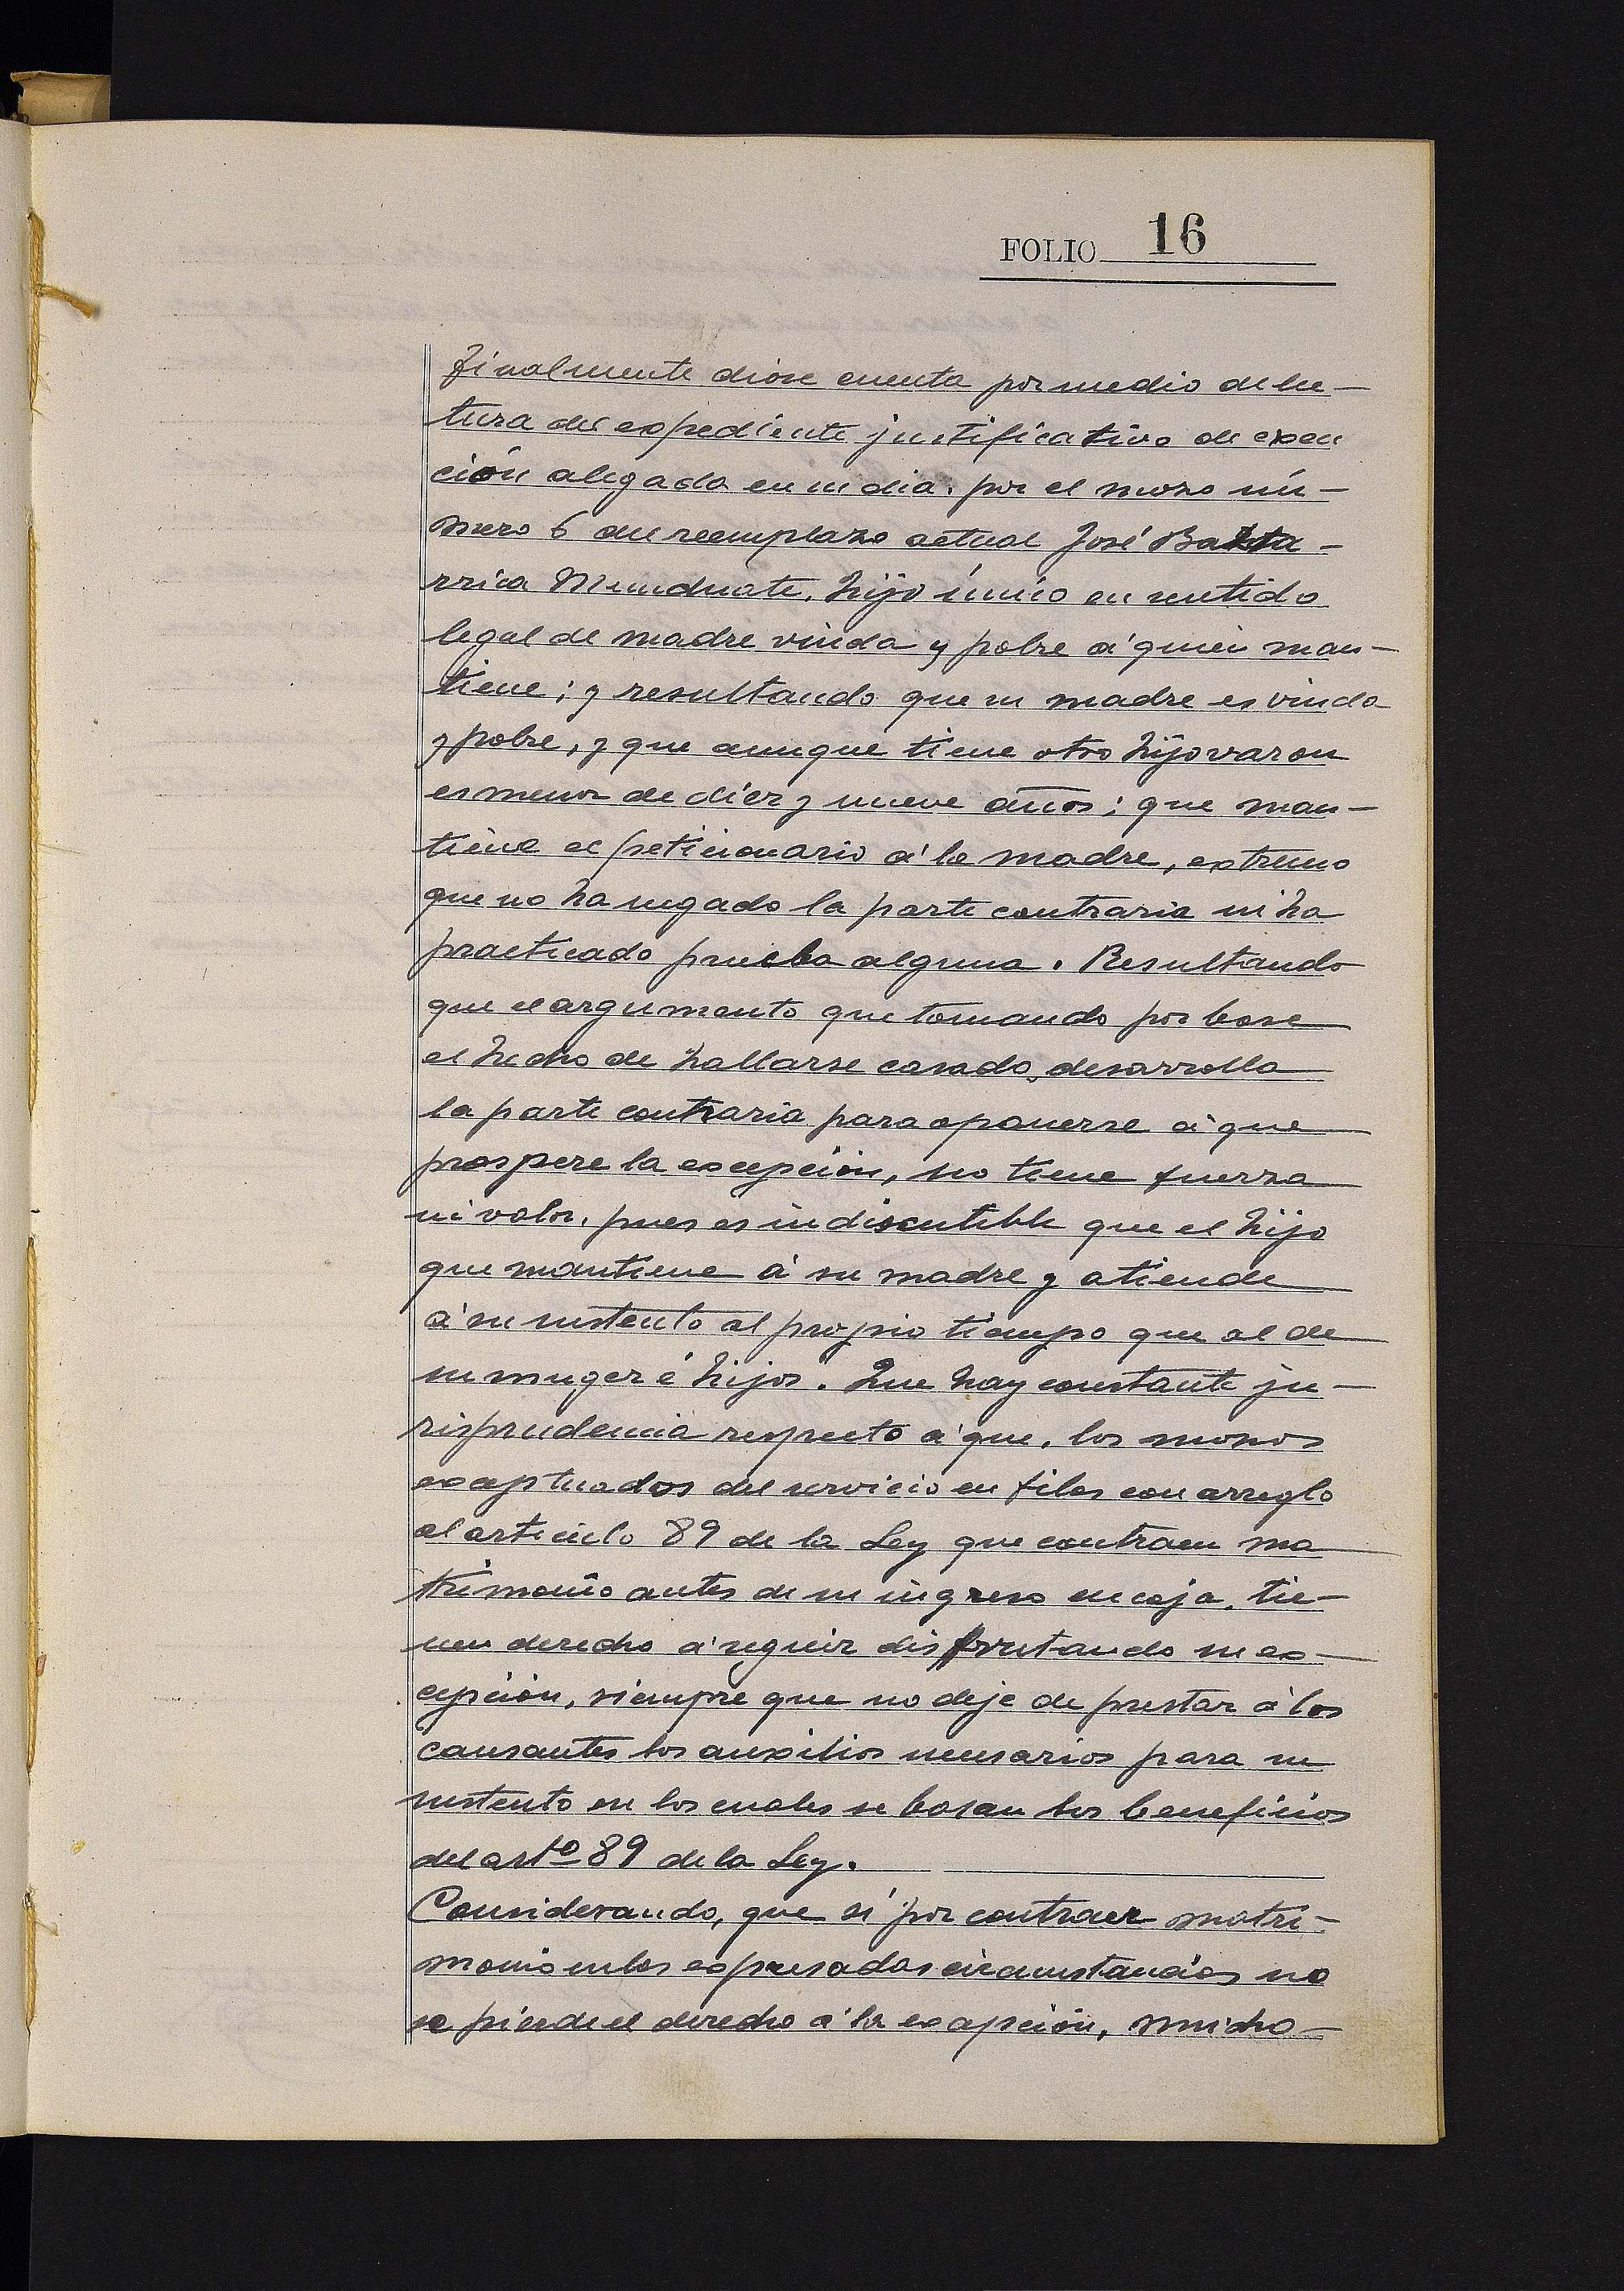 FOLIO 16
Finalmente diose cuenta por medio de lec-
tura del expediente justificativo de exen
ción alegada en su dia, por el mozo nú-
mero 6 del reemplazo actual José Bazta-
rrica Munduate, hijo único en sentido
legal de madre viuda y pobre á quien man-
tiene; y resultando que su madre es viuda
y pobre, y que aunque tiene otro hijo varon
es menor de diez y nueve años; que man-
tiene el peticionario á la madre, extremo
que no ha negado la parte contraria ni ha
practicado prueba alguna. Resultando
que el argumento que tomando por base
el hecho de hallarse casado, desarrolla
la parte contraria para oponerse á que
prospere la excepción, no tiene fuerza
ni valor, pues es indiscutible que el hijo
que mantiene á su madre y atiende
á su sustento al propio tiempo que al de
su muger é hijos. Que hay constante ju-
risprudencia respecto á que, los mozos
exceptuados del servicio en filas con arreglo
al articulo 89 de la Ley que contraen ma
trimonio antes de su ingreso en caja, tie-
nen derecho á seguir disfrutando su ex-
cepción, siempre que no deje de prestar á los
causantes los auxilios necesarios para su
sustento en los cuales se basan los beneficios
del artº 89 de la Ley.
Considerando, que si por contraer matri-
monio en las expresadas circunstancias no
se pierde el derecho á la excepción, mucho-